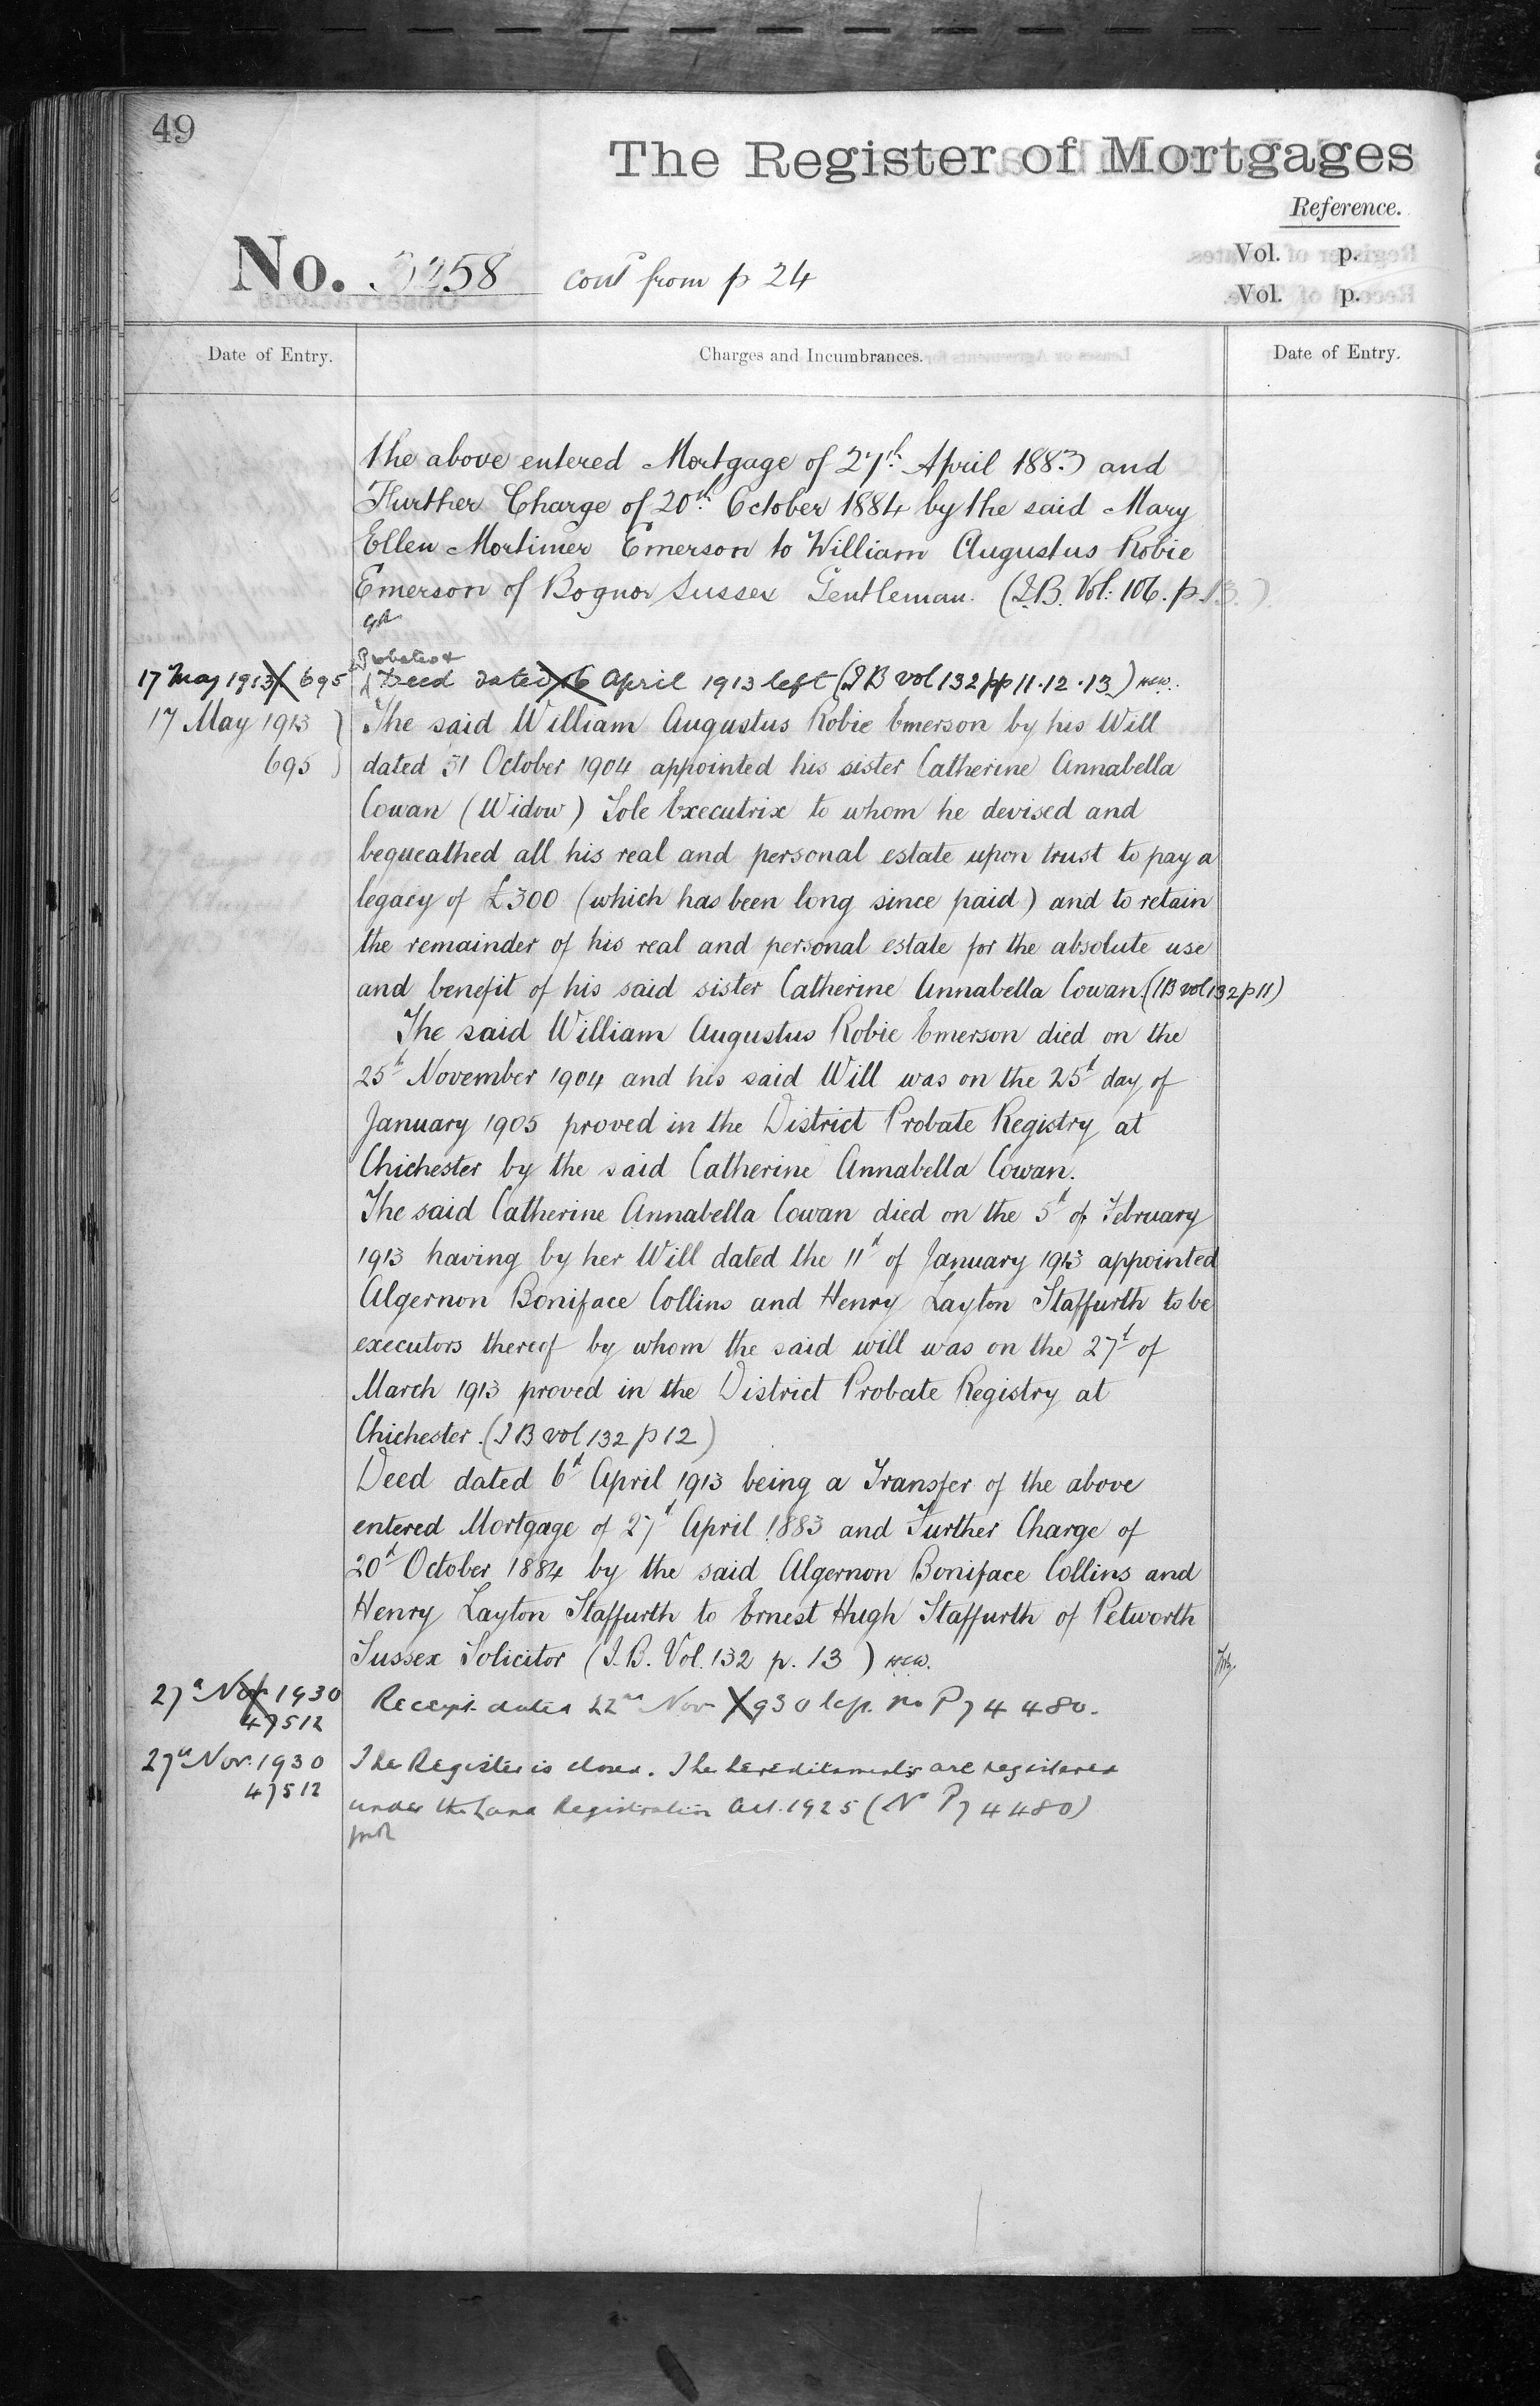 49
The Register of Mortgages
Reference.
No. 3258 contd from p 24
Vol. p.
Vol. p.
Date of Entry. Charges and Incumbrances. Date of Entry.
the above entered Mortgage of 27th April 1883 and
Further Charge of 20th October 1884 by the said Mary
Ellen Mortimer Emerson to William Augustus Robie
Emerson of Bognor Sussex Gentleman. (I.B. Vol: 106. p. 13.)
Probates &
17 May 1913 695 Deed dated 6 April 1913 left (I B vol 132 pp 11.12.13)
17 May 1913 The said William Augustus Robie Emerson by his Will
695 dated 31 October 1904 appointed his sister Catherine Annabella
Cowan (Widow) Sole Executrix to whom he devised and
bequeathed all his real and personal estate upon trust to pay a
legacy of £300 (which has been long since paid) and to retain
the remainder of his real and personal estate for the absolute use
and benefit of his said sister Catherine Annabella Cowan (IB vol 132 p 11)
The said William Augustus Robie Emerson died on the
25th November 1904 and his said Will was on the 25th day of
January 1905 proved in the District Probate Registry at
Chichester by the said Catherine Annabella Cowan.
The said Catherine Annabella Cowan died on the 5th of February
1913 having by her Will dated the 11th of January 1913 appointed
Algernon Boniface Collins and Henry Layton Staffurth to be
executors thereof by whom the said will was on the 27th of
March 1913 proved in the District Probate Registry at
Chichester. (I B vol 132 p 12)
Deed dated 6th April 1913 being a Transfer of the above
entered Mortgage of 27th April 1883 and Further Charge of
20th October 1884 by the said Algernon Boniface Collins and
Henry Layton Staffurth to Ernest Hugh Staffurth of Petworth
Sussex Solicitor (I.B. Vol. 132 p. 13)
27th Nov 1930 Receipt dated 22nd Nov 1930 No P74480.
47512
27th Nov. 1930 The Register is closed. The hereditaments are registered
47512 under the Land Registration Act. 1925 (No P74480)